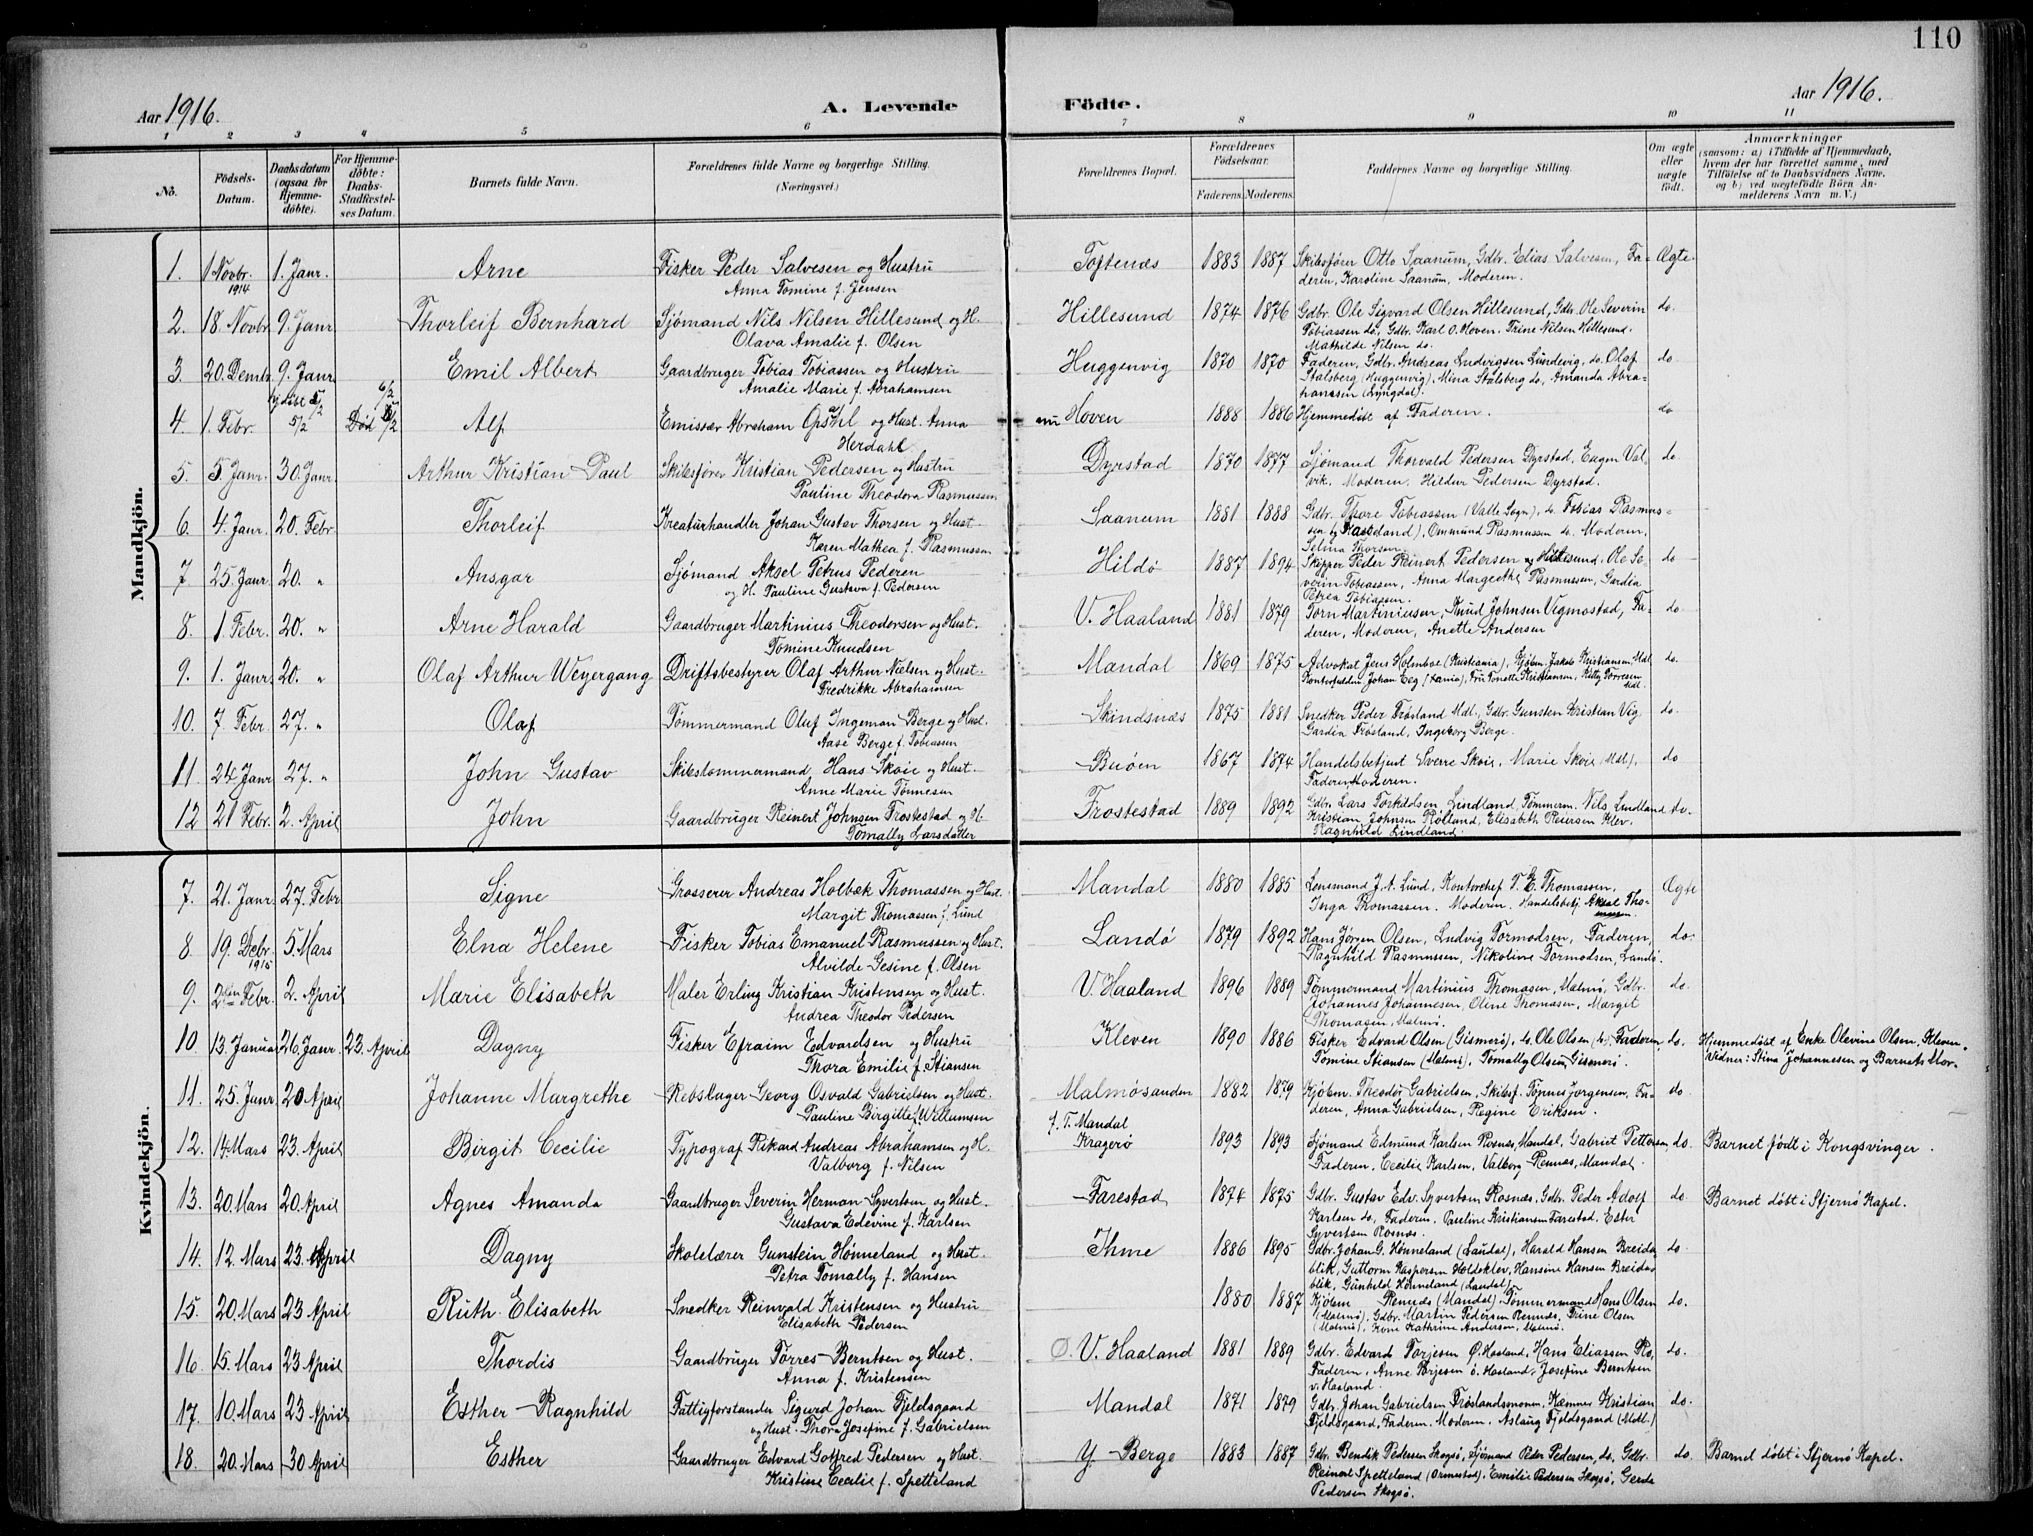 110
Aar 1916.
A. Levende
Födte.
Aar 1916.
1 2 3 4 5 6 7 8 9 10 11
No.
Födsels-Datum.
Daabsdatum (ogsaa for Hjemme-döbte).
For Hjemme-döbte: Daabs-Stadfæstel-ses Datum.
Barnets fulde Navn.
Forældrenes fulde Navne og borgerlige Stilling. (Næringsvei.)
Forældrenes Bopæl.
Forældrenes Födselsaar.
Faderens. Moderens.
Faddernes Navne og borgerlige Stilling.
Om ægte eller uægte födt.
Anmærkninger
(saasom: a) i Tilfælde af Hjemmedaab, hvem der har forrettet samme, med Tilföielse af to Daabsvidners Navne, og b) ved uægtefödte Börn An-melderens Navn m. V.)
Mandkjön.
1. 1 Novbr. 1914 1. Janr. Arne Fisker Peder Salvesen og Hustru Toftenæs 1883 1887 Skibsfører Otto Saanum, Gdbr. Elias Salvesen, Fa- Ægte.
Anna Tomine f. Jensen deren, Karoline Saanum, Moderen.
2. 18. Novbr 9. Janr Thorleif Bernhard Sjømand Nils Nilsen Hillesund og H. Hillesund 1874 1876 Gdbr. Ole Sigvard Olsen Hillesund, Gdb. Ole Severin do.
Olava Amalie f. Olsen Tobiassen do, Gdbr. Karl O. Hoven, Trine Nilsen Hillesund.
Mathilde Nilsen do.
3. 20. Dembr 9. Janr. Emil Albert Gaardbruger Tobias Tobiassen og Hustru Huggenvig 1870 1870 Faderen, Gdbr. Andreas Ludvigsen Lundevig, do. Olaf do
Amalie Marie f. Abrahamsen Stalsberg (Huggenvig), Mina Stalsberg do, Amanda Abra-
hamsen (Lyngdal).
4. 1. Febr. 5/2 Død 6/2 Alf Emissær Abraham Opsahl og Hust. Anna Hoven 1888 1886 Hjemmedøbt af Faderen. do
Herdahl
5. 5. Janr. 30. Janr. Arthur Kristian Paul Skibsfører Kristian Pedersen og Hustru Dyrstad 1870 1877 Sjømand Thorvald Pedersen Dyrstad, Eugen Val- do.
Pauline Theodora Rasmussen vik, Moderen, Hildur Pedersen Dyrstad.
6. 4. Janr. 20. Febr. Thorleif Kreaturhandler Johan Gustav Thorsen og Hust. Saanum 1881 1888 Gdbr. Thore Tobiassen (Valle Sogn), do. Tobias Rasmus- do
Karen Mathea f. Rasmussen Ommund Rasmussen do. Moderen,
Selina Thorsen.
7 25. Janr. 20. " Ansgar Sjømand Aksel Petrus Pedersen Hildö 1887 1894 Skipper Peder Reinert Pedersen Hillesund, Ole Se- do
og H. Pauline Gustava f. Pedersen verin Tobiassen, Anna Margrethe Rasmussen, Gardia
Petrea Tobiassen.
8. 1. Febr. 20. " Arne Harald Gaardbruger Martinius Theodorsen og Hust. V. Haaland 1881 1879 Torn Martiniusen, Knud Johnsen Vigmostad, Fa- do.
Tomine Knudsen deren, Moderen, Anette Andersen
9. 1. Janr. 20. " Olaf Arthur Weyergang Driftsbestyrer Olaf Arthur Nielsen og Hust. Mandal 1869 1875 Advokat Jens Holmboe (Kristiania), Kjøbm. Jakob Kristiansen, Mdl. do.
Fredrikke Abrahamsen Johan Eeg Fru Tonette Kristiansen, Kitty Torresen
10. 7. Febr. 27. " Olaf Tømmermand Oluf Ingeman Berge og Hust. Skindsnæs 1875 1881 Snedker Peder Frøsland Mdl. Gdbr. Gunsten Kristian Vig, do.
Aase Berge f. Tobiassen Gardia Frøsland, Ingeborg Berge.
11. 24 Janr 27. " John Gustav Skibstømmermand Hans Skøie og Hust. Buöen 1867 1874 Handelsbetjent Sverre Skøie, Marie Skøie (Mdl), do
Anne Marie Tønnesen Faderen Moderen.
12 21 Febr. 2. April John Gaardbruger Reinert Johnsen Frøstestad og H. Frostestad 1889 1892 Gdbr. Lars Torkildsen Lindland, Tømmerm. Nils Lindland do.
Tomally Larsdatter Kristian Johnsen Rolland, Elisabeth Reiersen Klev.
Ragnhild Lindland.
Kvindekjön.
7. 21. Janr 27. Febr Signe Grosserer Andreas Holbæk Thomassen og Hust. Mandal 1880 1885 Lensmand J. A. Lund, Kontorchef T. E. Thomassen, Ægte
Margit Thomassen f. Lund Inga Thomassen. Moderen. Handelsbetj. Aksel Tho-
massen.
8 19. Decbr. 1915 5. Mars Elna Helene Fisker Tobias Emanuel Rasmussen og Hust. Landö 1879 1892 Hans Jørgen Olsen, Ludvig Tormodsen, Faderen, do.
Alvilde Gesine f. Olsen Ragnhild Rasmussen, Nikoline Tormodsen, Landö.
9. 2den Febr. 2. April Marie Elisabeth Maler Erling Kristian Kristensen og Hust. V. Haaland 1896 1889 Tømmermand Martinius Thomasen, Malmö, Gdbr. do.
Andrea Theodor Pedersen Johannes Johannesen, Oline Thomasen, Margit
Thomasen, Malmö.
10. 13. Januar 26. Janr. 23. April Dagny Fisker Efraim Edvardsen og Hustru Kleven 1890 1886 Fisker Edvard Olsen (Gismerö), do. Ole Olsen (do.), Faderen, do. Hjemmedøbt af Enke Olevine Olsen, Kleven.
Thora Emilie f. Stiansen Tomine Stiansen (Malmö), Tomally Olsen, Gismerö. Vidner: Stina Johannesen og Barnets Mor.
11. 25. Janr. 20 April Johanne Margrethe Rebslager Georg Osvald Gabrielsen og Hust. Malmösanden 1882 1879 Kjøbm. Theodor Gabrielsen, Skibsf. Tønnes Jørgensen, Fa- do
Pauline Birgitte f. Willumsen deren, Anna Gabrielsen, Regine Eriksen.
12. 14 Mars 23. April Birgit Cecilie Typograf Rikard Andreas Abrahamsen og H. f. T. Mandal Kragerö 1893 1893 Sjømand Edmund Karlsen Rosnes, Mandal, Gabriel Pettersen, do. Barnet født i Kongsvinger.
Valborg f. Nilsen Faderen, Cecilie Karlsen, Valborg Rennes, Mandal.
13. 20. Mars 20. April Agnes Amanda Gaardbruger Severin Herman Syvertsen og Hust. Farestad 1874 1875 Gdbr. Gustav Edv. Syvertsen Rosnæs, Gdbr. Peder Adolf do. Barnet døbt i Stjernö Kapel.
Gustava Edevine f. Karlsen Karlsen do, Faderen, Pauline Kristiansen Farestad, Ester
Syvertsen Rosnæs.
14. 12. Mars 23. April Dagny Skolelærer Gunstein Hønneland og Hust. Ihme 1886 1895 Gdbr. Johan G. Hønneland (Laudal), Harald Hansen Breida- do.
Petra Tomally f. Hansen blik, Guttorm Kaspersen Holdeklev, Hansine Hansen Breida-
blik, Gunhild Hønneland (Laudal)
15. 20. Mars 23. April Ruth Elisabeth Snedker Reinvald Kristensen og Hustru 1880 1887 Kjøbm. Rennes (Mandal), Tømmermand Hans Olsen do.
Elisabeth Pedersen (Malmö), Gdbr. Martin Pedersen Rennes, Trine Olsen
(Malmö), Kone Kathrine Andersen, Malmö.
16. 15. Mars 23. April Thordis Gaardbruger Torres Berntsen og Hust. Ø. V. Haaland 1881 1889 Gdbr. Edvard Torjesen Ø. Haaland, Hans Eliassen Ro, do.
Anna f. Kristensen Faderen, Anne Torjesen ö. Haaland, Josefine Berntsen
v. Haaland.
17. 10. Mars 23 April Esther Ragnhild Fattigforstander Sigurd Johan Fjeldsgaard Mandal 1871 1879 Gdbr. Johan Gabrielsen Frøslandsmonen, Kæmner Kristian do.
og Hust. Thora Josefine f. Gabrielsen Fjeldsgaard, Faderen, Moderen, Aslaug Fjeldsgaard (Mdl.)
18. 20. Mars 30 April Esther Gaardbruger Edvard Gotfred Pedersen og Hust. Y. Berge 1883 1887 Gdbr. Bendik Pedersen Skogsö, Sjømand Peder Pedersen, do, Gdbr. do. Barnet døbt i Stjernö Kapel.
Kristine Cecilie f. Spetteland Reinert Spetteland (Ormestad), Emilie Pedersen Skogsö, Gerda
Pedersen Skogsö.